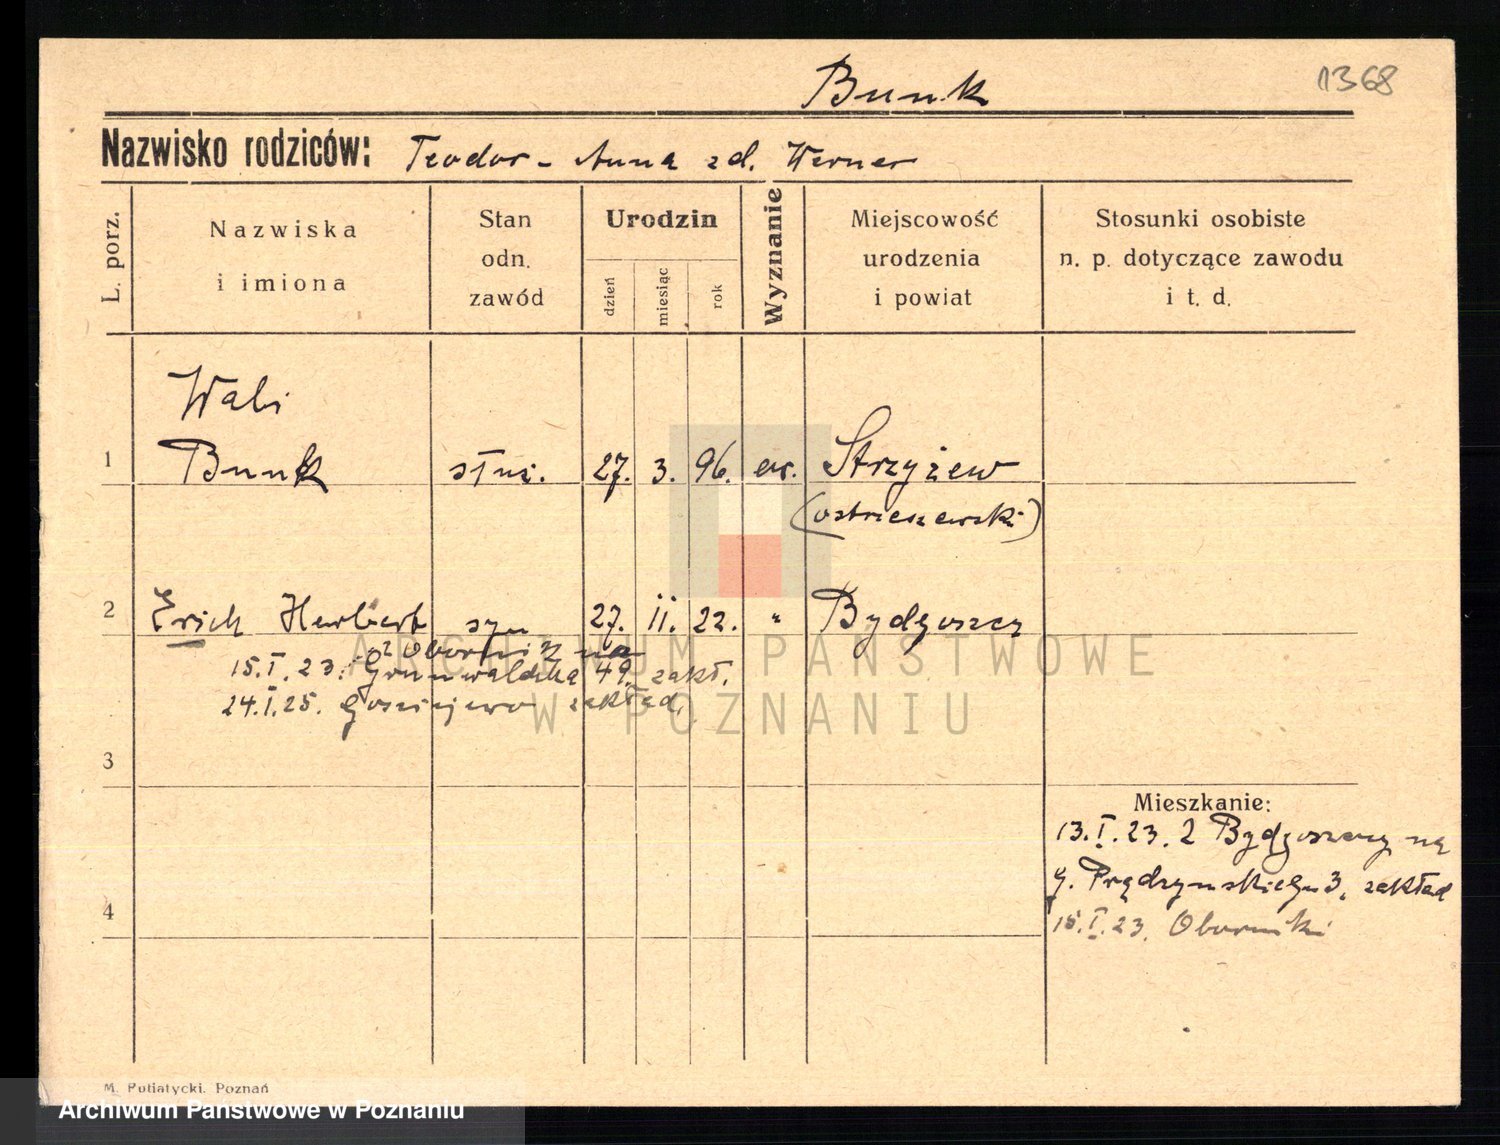 Bunk
1368
Nazwisko rodziców: Teodor - Anna zd. Werner
L. porz.
Nazwiska i imiona
Stan odn. zawód
Urodzin
dzień
miesiąc
rok
Wyznanie
Miejscowość urodzenia i powiat
Stosunki osobiste n. p. dotyczące zawodu i t. d.
Wali
1 Bunk służ. 27. 3. 96. ew. Strzyżew
(ostrzeszewski)
2 Erich Herbert syn 27. II. 22. " Bydgoszcz
z Obornik na
15.I.23. Grunwaldzka 49. zakł.
24.I.25. Gościejewo zakład.
3
Mieszkanie:
13.I.23. z Bydgoszczy na
g. Prądzyńskiego 3, zakład
4
15.I.23. Oborniki
ARCHIWUM PAŃSTWOWE
W POZNANIU
M. Putiatycki. Poznań
Archiwum Państwowe w Poznaniu